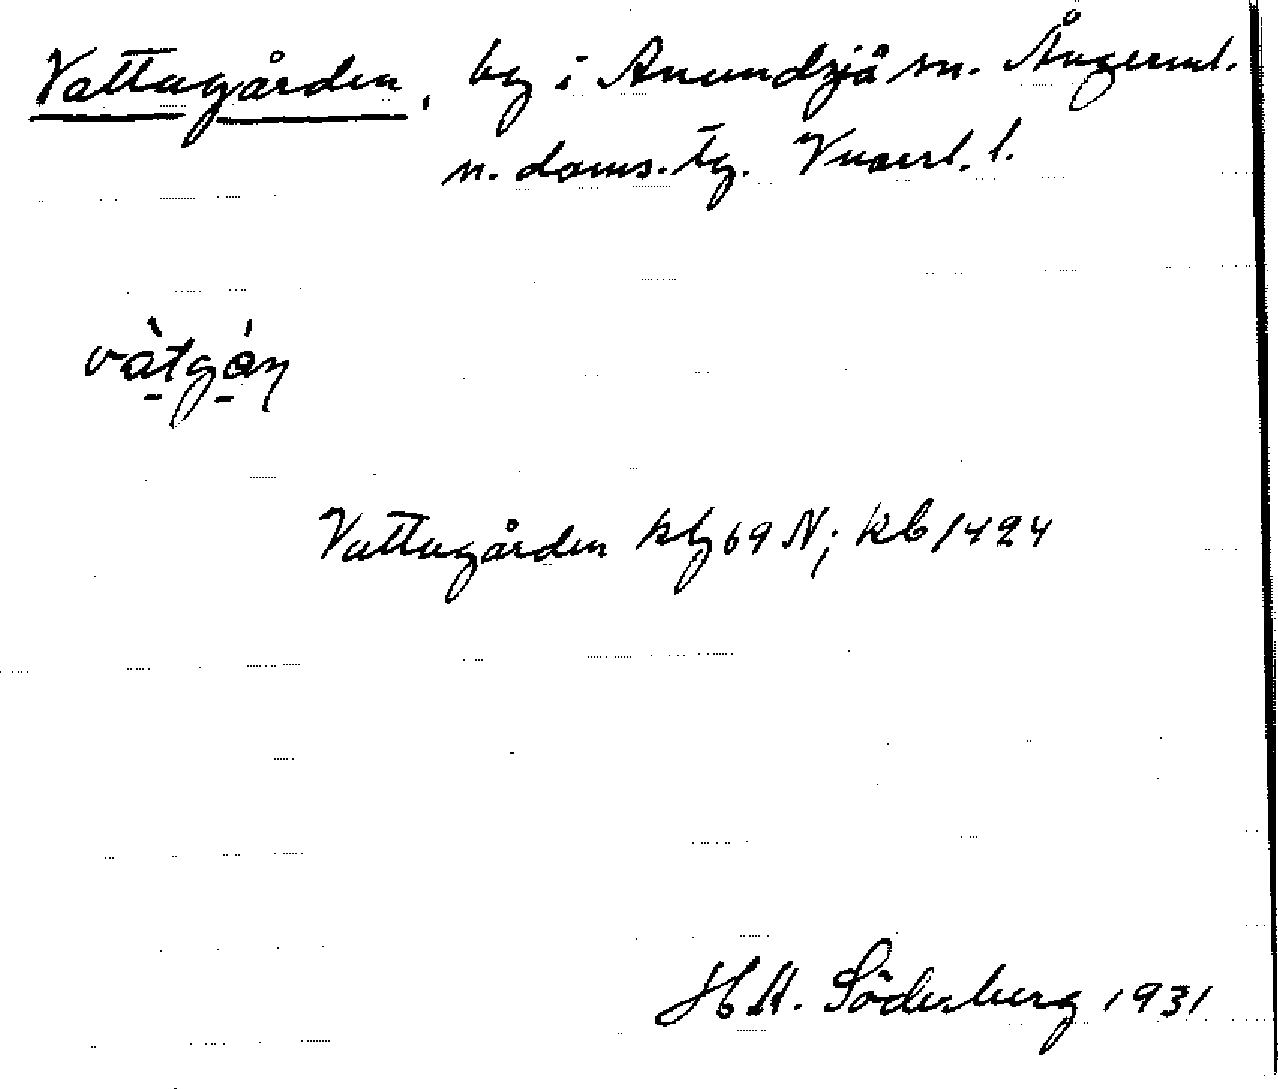 Vattagården, by i Anundsjö sn. Ångerml.
n. doms. tg. Vnorrl. l.
vàtgán
Vattagården kbg 69 N; kb 1424
H A. Söderberg 1931